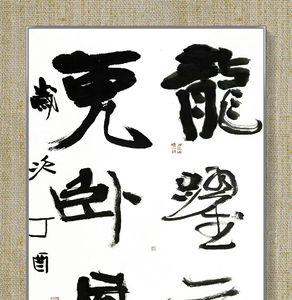 龍躍
虎卧
歲次丁酉